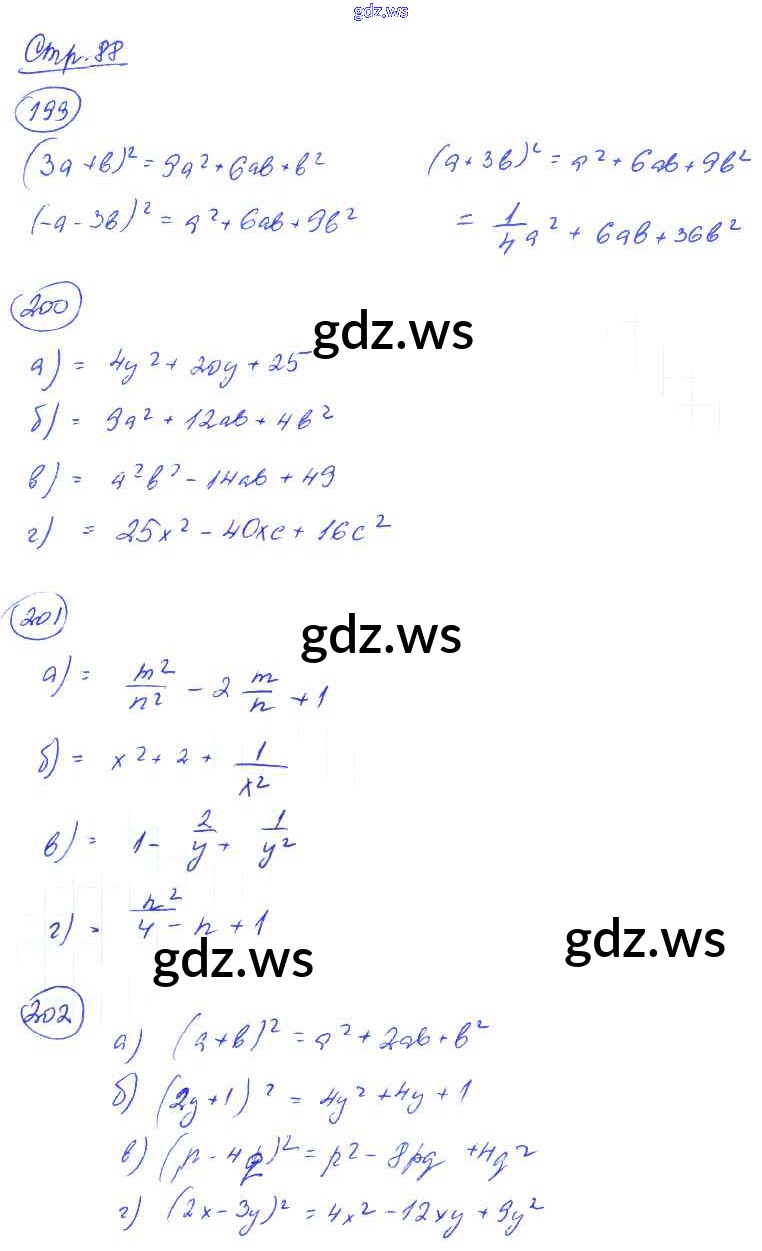 gdz.ws
Стр. 88
199
(3a+b)² = 9a²+6ab+b²    (a+3b)² = a²+6ab+9b²
(-a-3b)² = a²+6ab+9b²    = 1/4 a² + 6ab+36b²
200
gdz.ws
а) = 4y²+20y+25
б) = 9a²+12ab+4b²
в) = a²b²-14ab+49
г) = 25x²-40xc+16c²
201
gdz.ws
а) = m²/n² - 2 m/n + 1
б) = x²+2+ 1/x²
в) = 1- 2/y + 1/y²
г) = n²/4 - n + 1
gdz.ws
gdz.ws
202
а) (a+b)² = a²+2ab+b²
б) (2y+1)² = 4y²+4y+1
в) (p-4q)² = p²-8pq+4q²
г) (2x-3y)² = 4x²-12xy+9y²